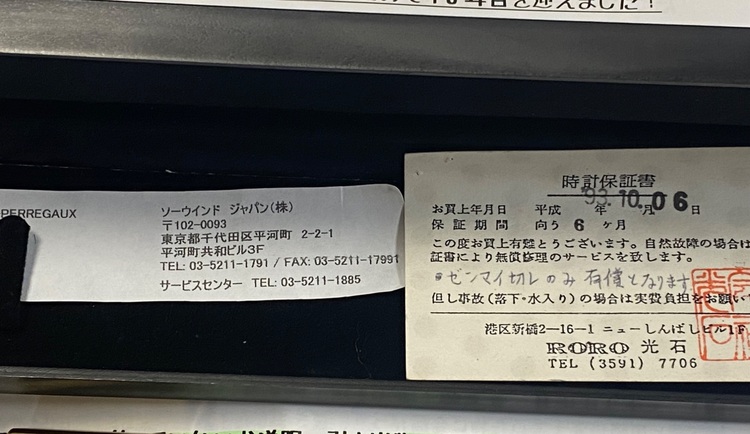 PERREGAUX
ソーウインド ジャパン(株)
〒102-0093
東京都千代田区平河町 2-2-1
平河町共和ビル3F
TEL: 03-5211-1791 / FAX: 03-5211-17991
サービスセンター TEL: 03-5211-1885
時計保証書
お買上年月日 平成 '93年10.月06日
保証期間 向う 6 ヶ月
この度お買上有難とうございます。自然故障の場合は
証書により無償修理のサービスを致します。
ゼンマイ切レのみ有償となります
但し事故(落下・水入り)の場合は実費負担をお願い
港区新橋2-16-1 ニューしんばしビル1F
RORO 光石
TEL (3591) 7706